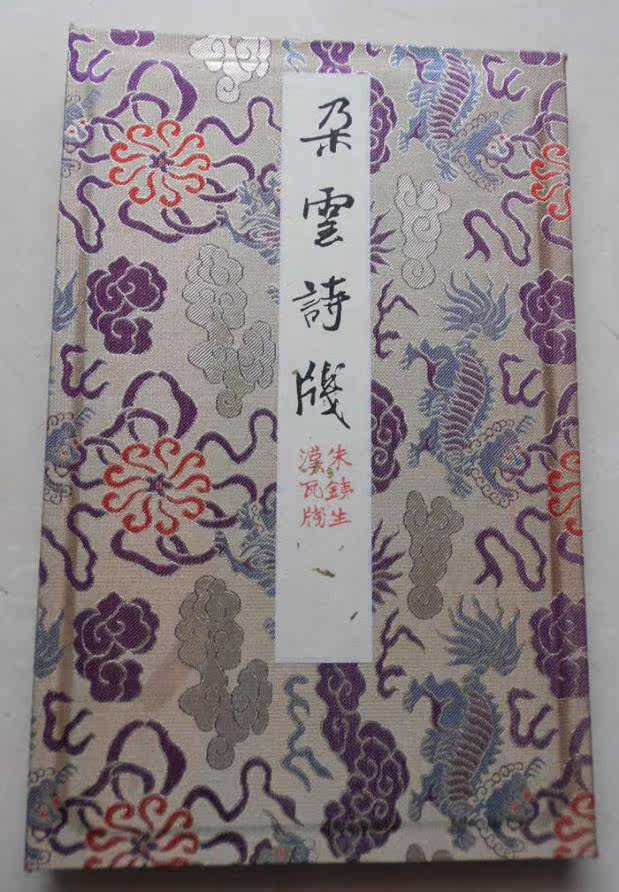 朵雲詩牋
朱鉄生
漢瓦牋